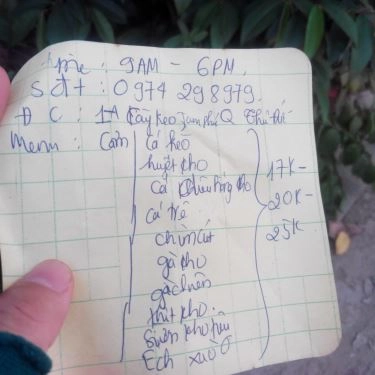 9AM - 6PM.
Sđt: 0974 298979
ĐC: 1A Cây Keo Tam Phú Q Thủ Đức
Menu: Cơm cá kèo
huyết kho
cá kho
cá trê
chim cút
gà kho
gà chiên
thịt kho.
Sườn kho
Ếch xào
17K -
20K -
25K